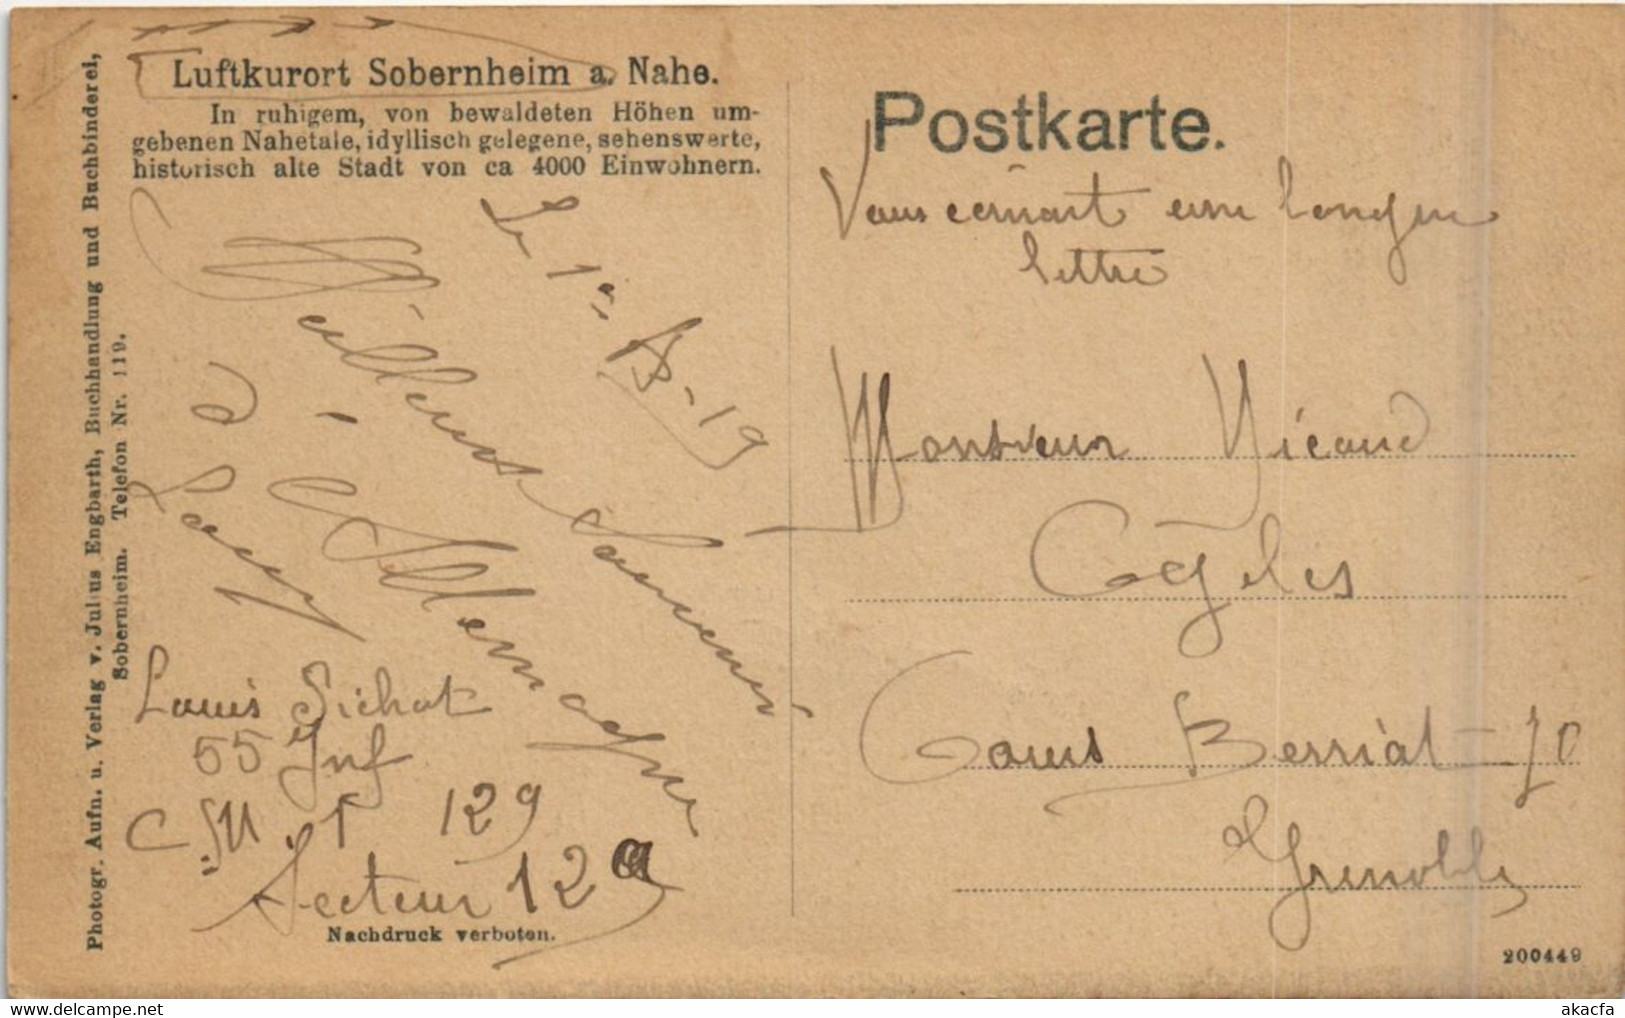 Luftkurort Sobernheim a. Nahe.
In ruhigem, von bewaldeten Höhen um-
gebenen Nahetale, idyllisch gelegene, sehenswerte,
historisch alte Stadt von ca 4000 Einwohnern.
Photogr. Aufn. u. Verlag v. Julius Engbarth, Buchhandlung und Buchbinderei,
Sobernheim. Telefon Nr. 119.
Postkarte.
Le 1er
19
Meilleurs Souvenirs
d'Allemagne
Louis Sichat
55 Inf
C.M. 1 129
Secteur 129
Nachdruck verboten.
Vous écrirait une longue
lettre
Monsieur Nicaud
Cours Berriat - 70
Grenoble
200449
akacfa